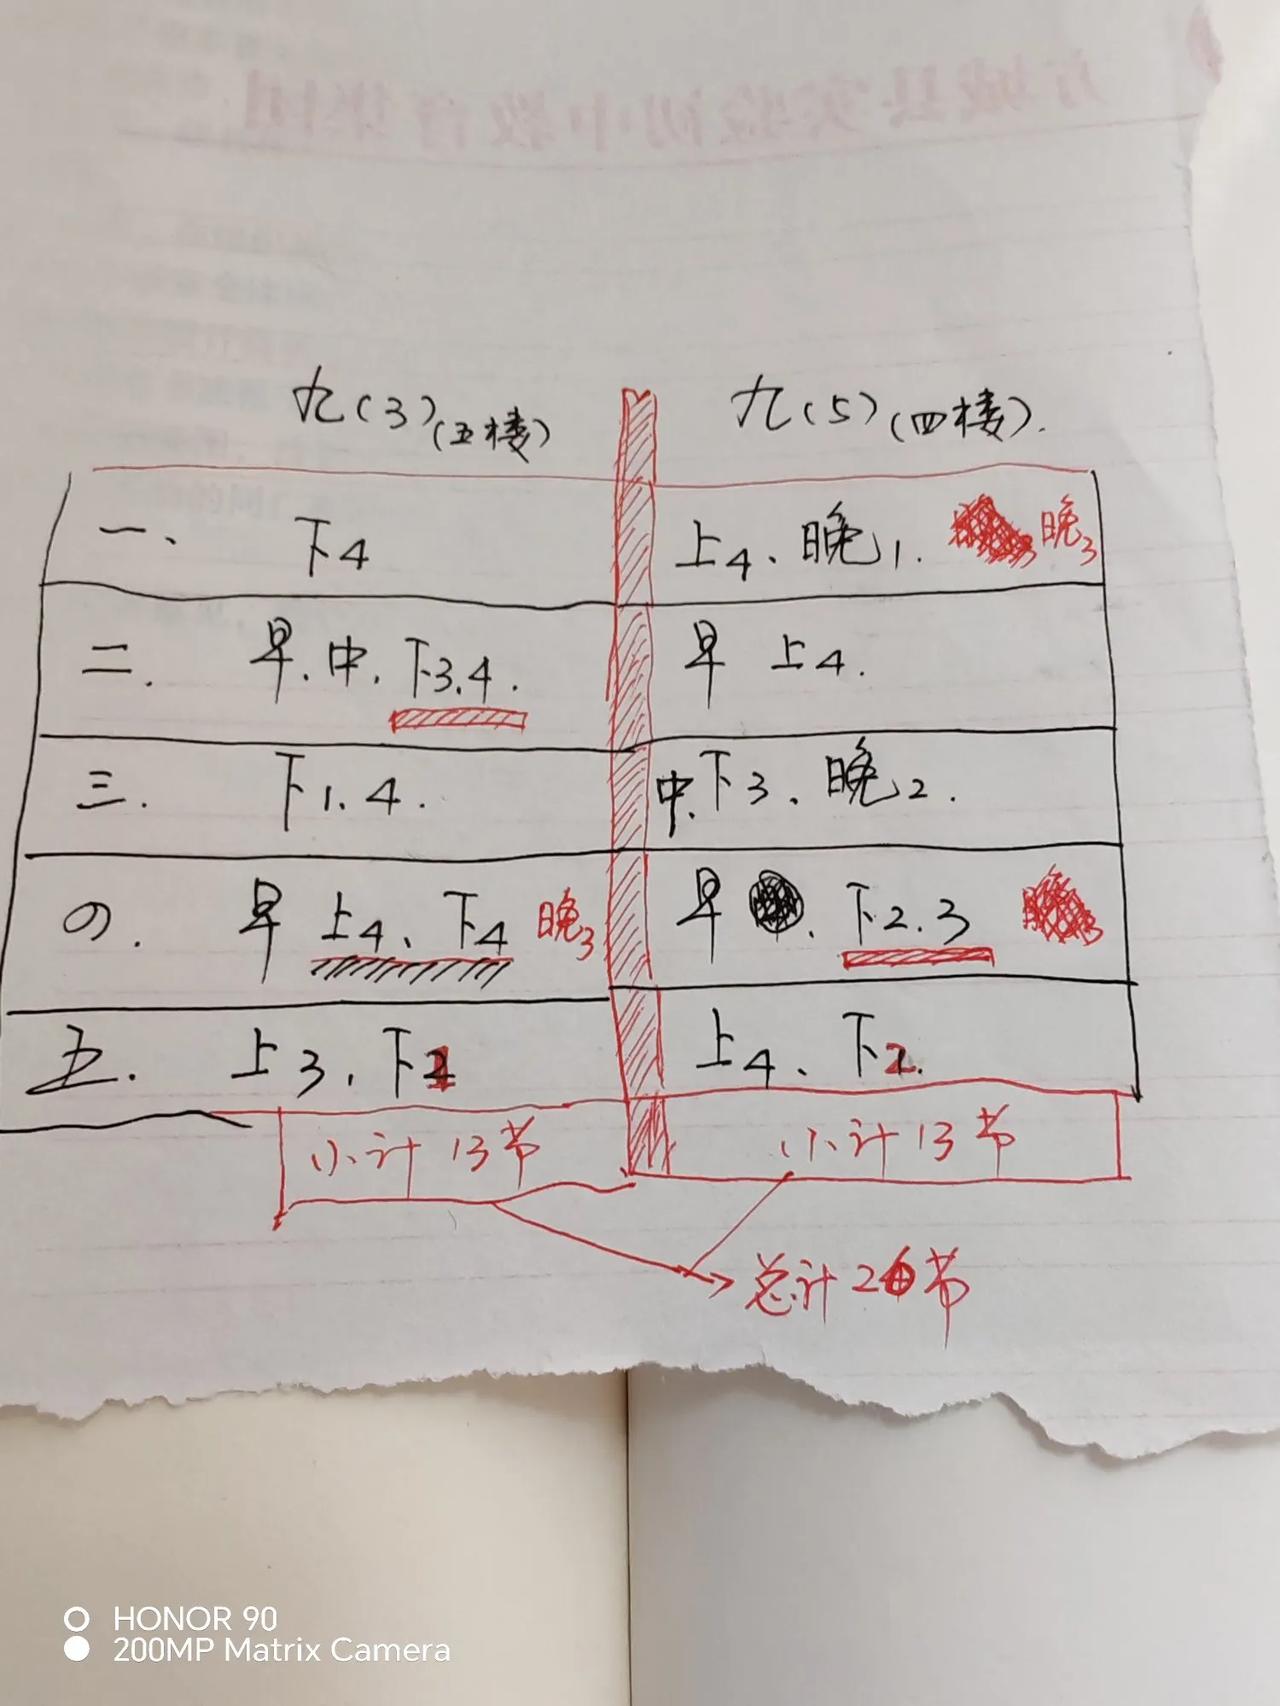 方城县实验初中教育集团
九(3)(五楼) 九(5)(四楼).
一、 下4 上4、晚1. 晚3
二. 早.中.下3.4. 早 上4.
三. 下1.4. 中.下3、晚2.
の. 早 上4、下4 晚3 早 、下2.3
五. 上3、下1 上4、下2.
小计13节 小计13节
总计26节
HONOR 90
200MP Matrix Camera